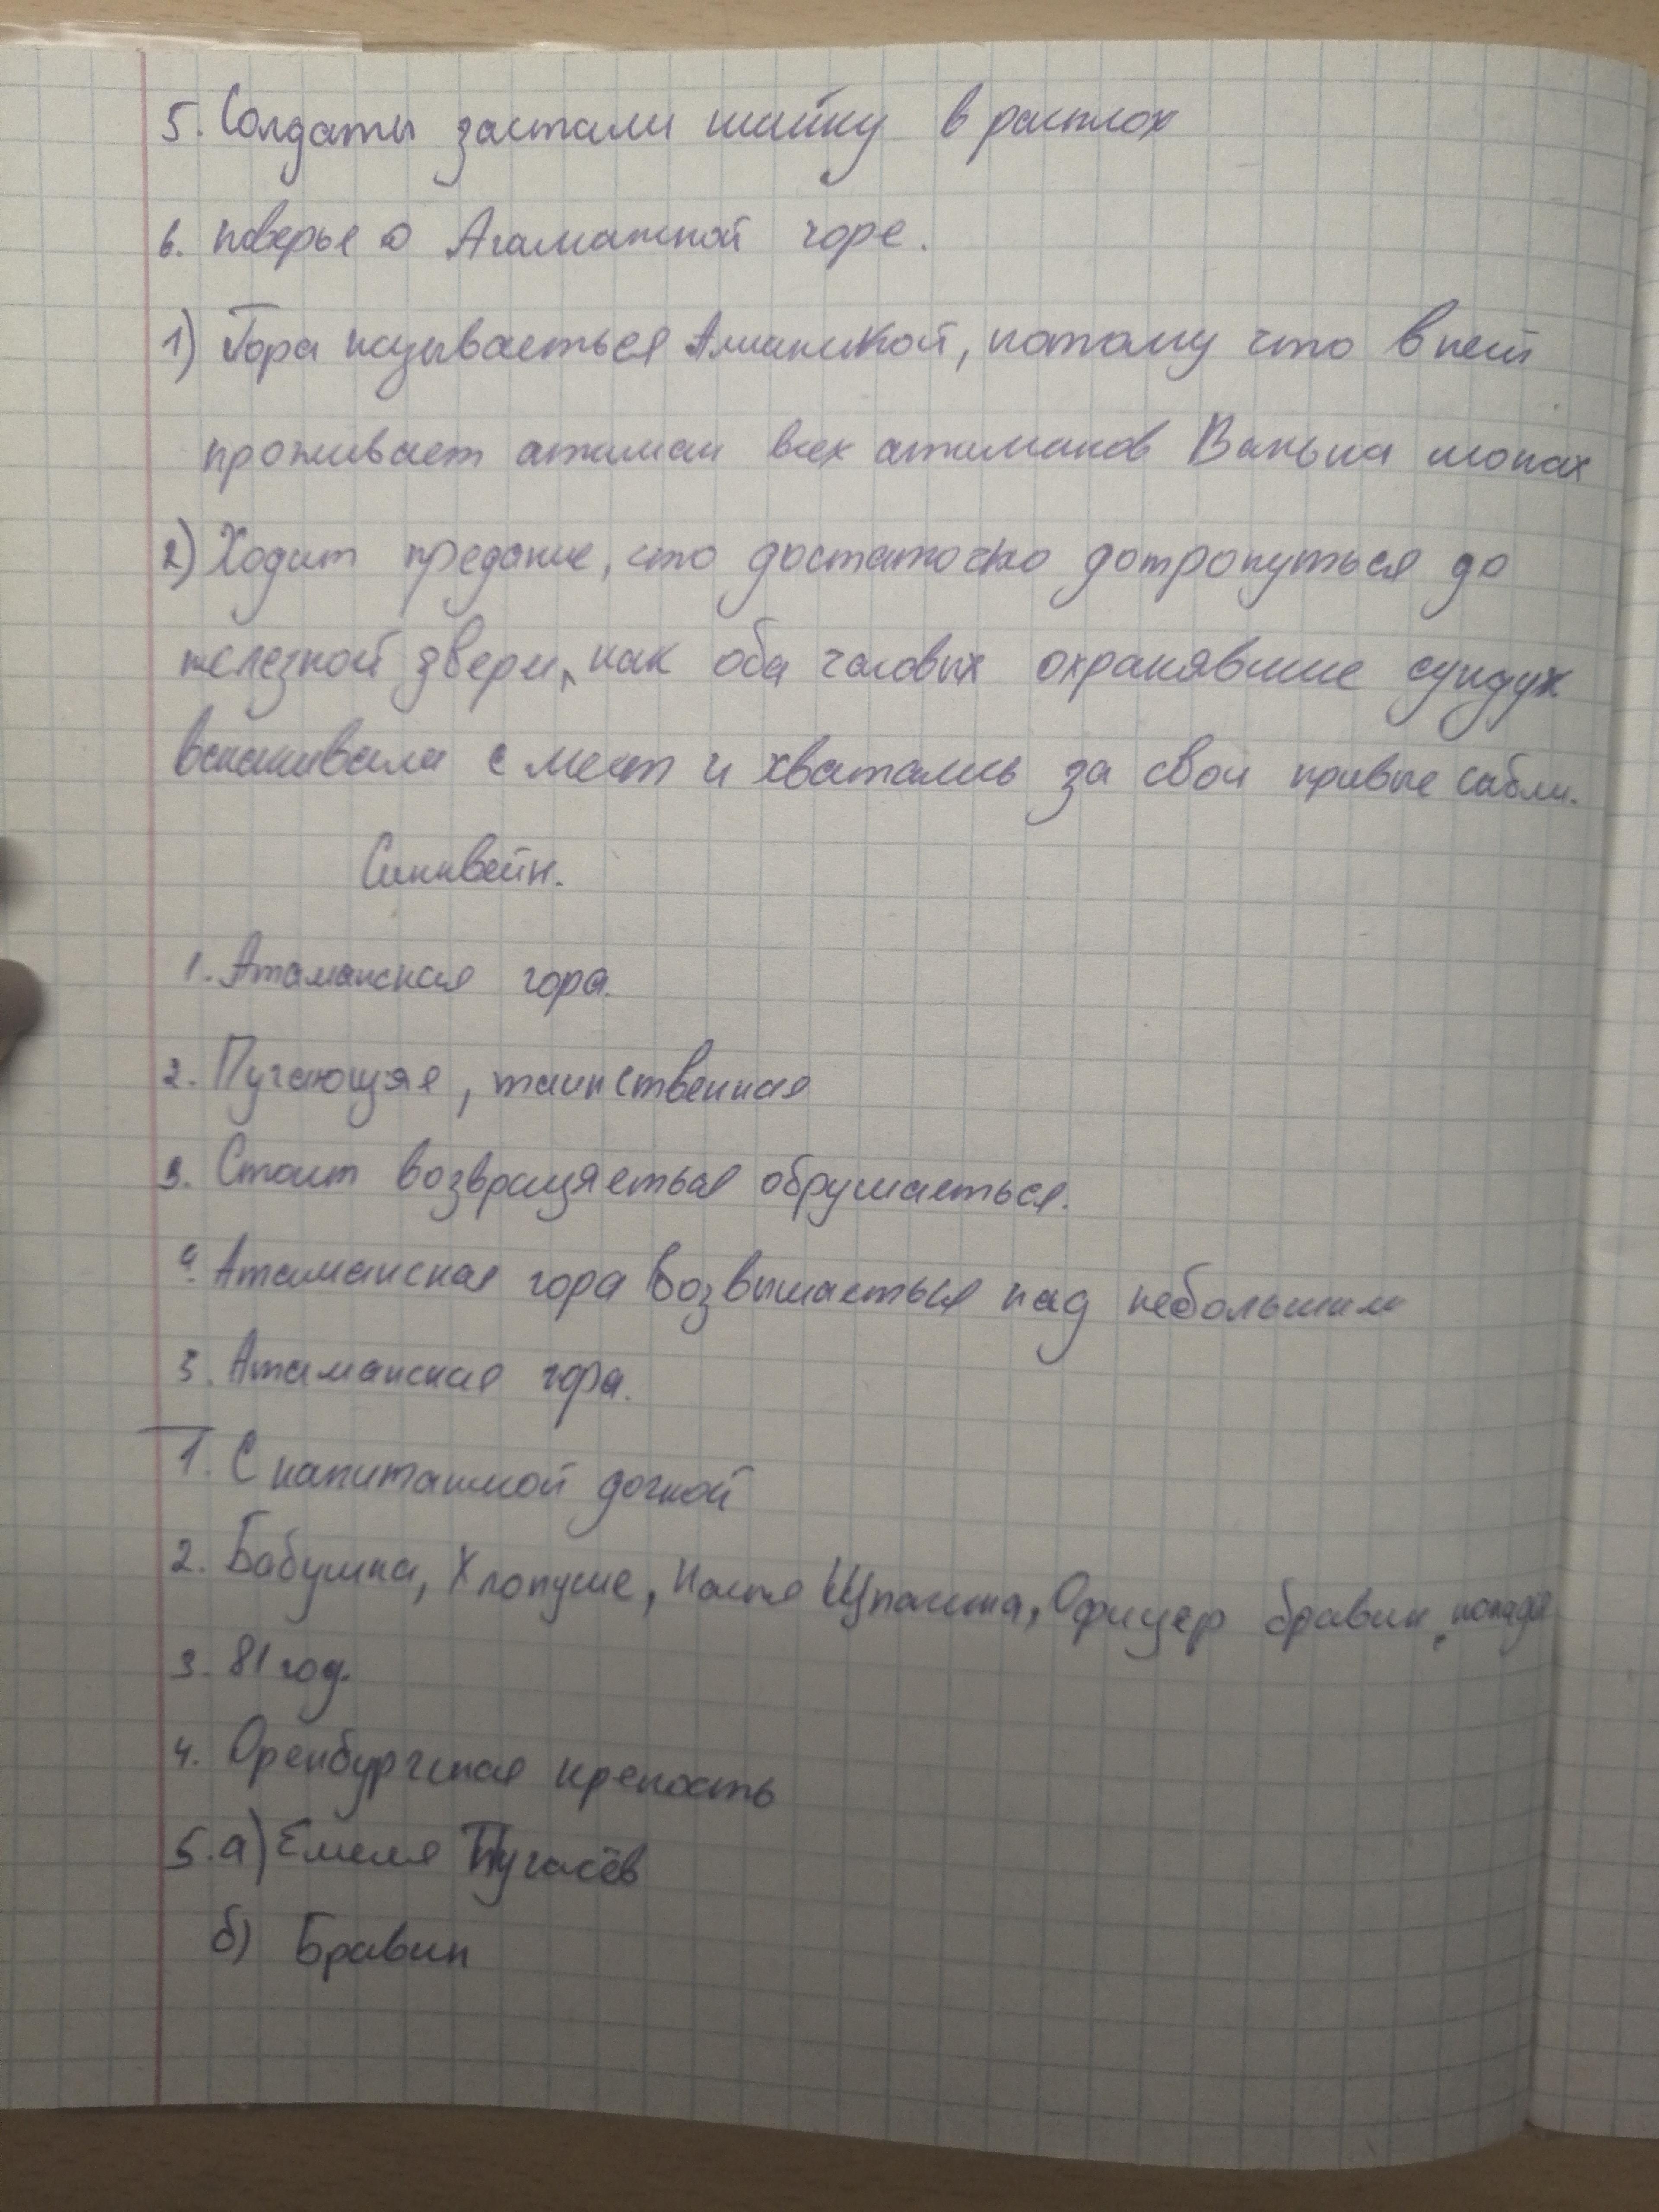 5. Солдаты застали шайку в расплох
6. поверье о Агаманской горе.
1) Гора называеться Аманской, потому что в ней
проживает атаман всех атаманов Ванька монах
2) Ходит предание, что достаточно дотронуться до
железной двери, как оба часовых охранявшие сундук
вскакивали с мест и хватались за свои кривые сабли.
Синквейн.
1. Атаманская гора.
2. Пугающяя, таинственная
3. Стоит возвращяеться обрушаеться.
4. Атаманская гора возвышаеться над небольшим
5. Атаманская гора.
1. С капитанской дочкой
2. Бабушка, Хлопуше, Настя Шпагина, Офицер бравин, попадья
3. 81 год.
4. Оренбургская крепость
5. а) Емеля Пугачёв
б) Бравин